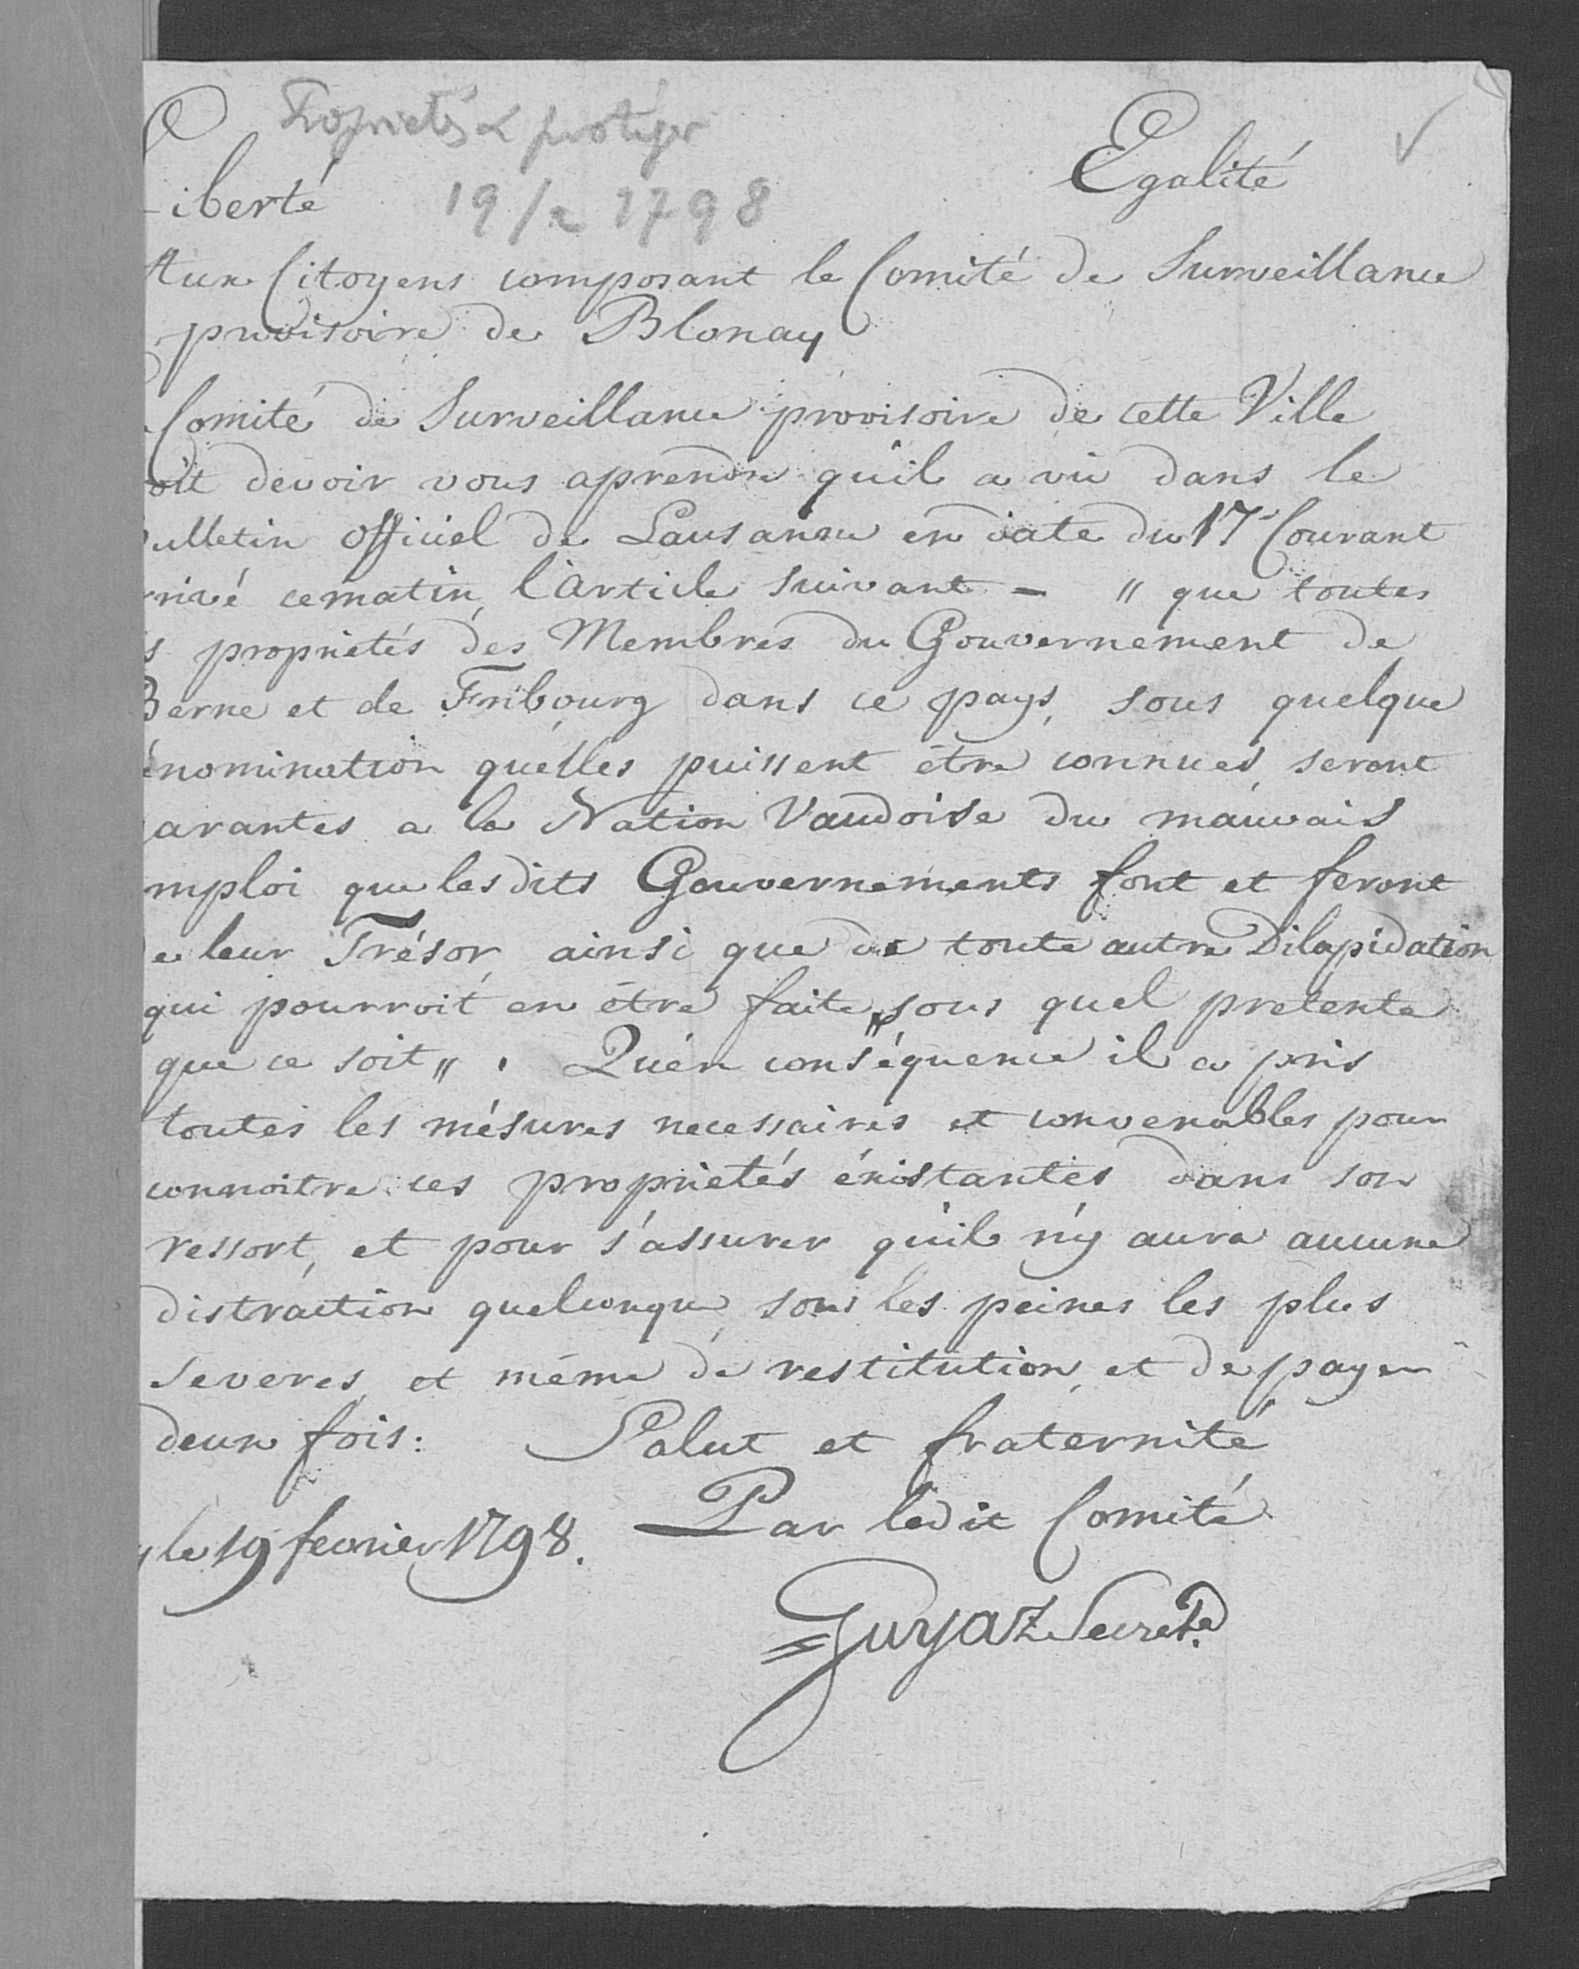 Propriétés à protéger
Liberté Egalité
19/2 1798
Aux Citoyens composant le Comité de Surveillance
provisoire de Blonay
Comité de Surveillance provisoire de cette Ville
oit devoir vous aprendre qu'il a vû dans le
ulletin officiel de Lausanne en date du 17e Courant
rrivé cematin, l'article suivant - " que toutes
s propriétés des Membres du Gouvernement de
Berne et de Fribourg dans ce pays, sous quelque
énomination qu'elles puissent être connues, seront
arantes a la Nation Vaudoise du mauvais
mploi que lesdits Gouvernements font et feront
de leur Trésor, ainsi que de toute autre Dilapidation
qui pourroit en être faite, sous quel pretexte
que ce soit ". Qu'en conséquence il a pris
toutes les mésures necessaires et convenables pour
connoitre ces propriétés éxistantes dans son
ressort, et pour s'assurer qu'il n'y aura aucune
distraction quelconque, sous les peines les plus
Severes, et même de restitution, et de payer
deux fois: Salut et fraternité
Par ledit Comité
le 19 fevrier 1798.
Guyaz Secrét.e